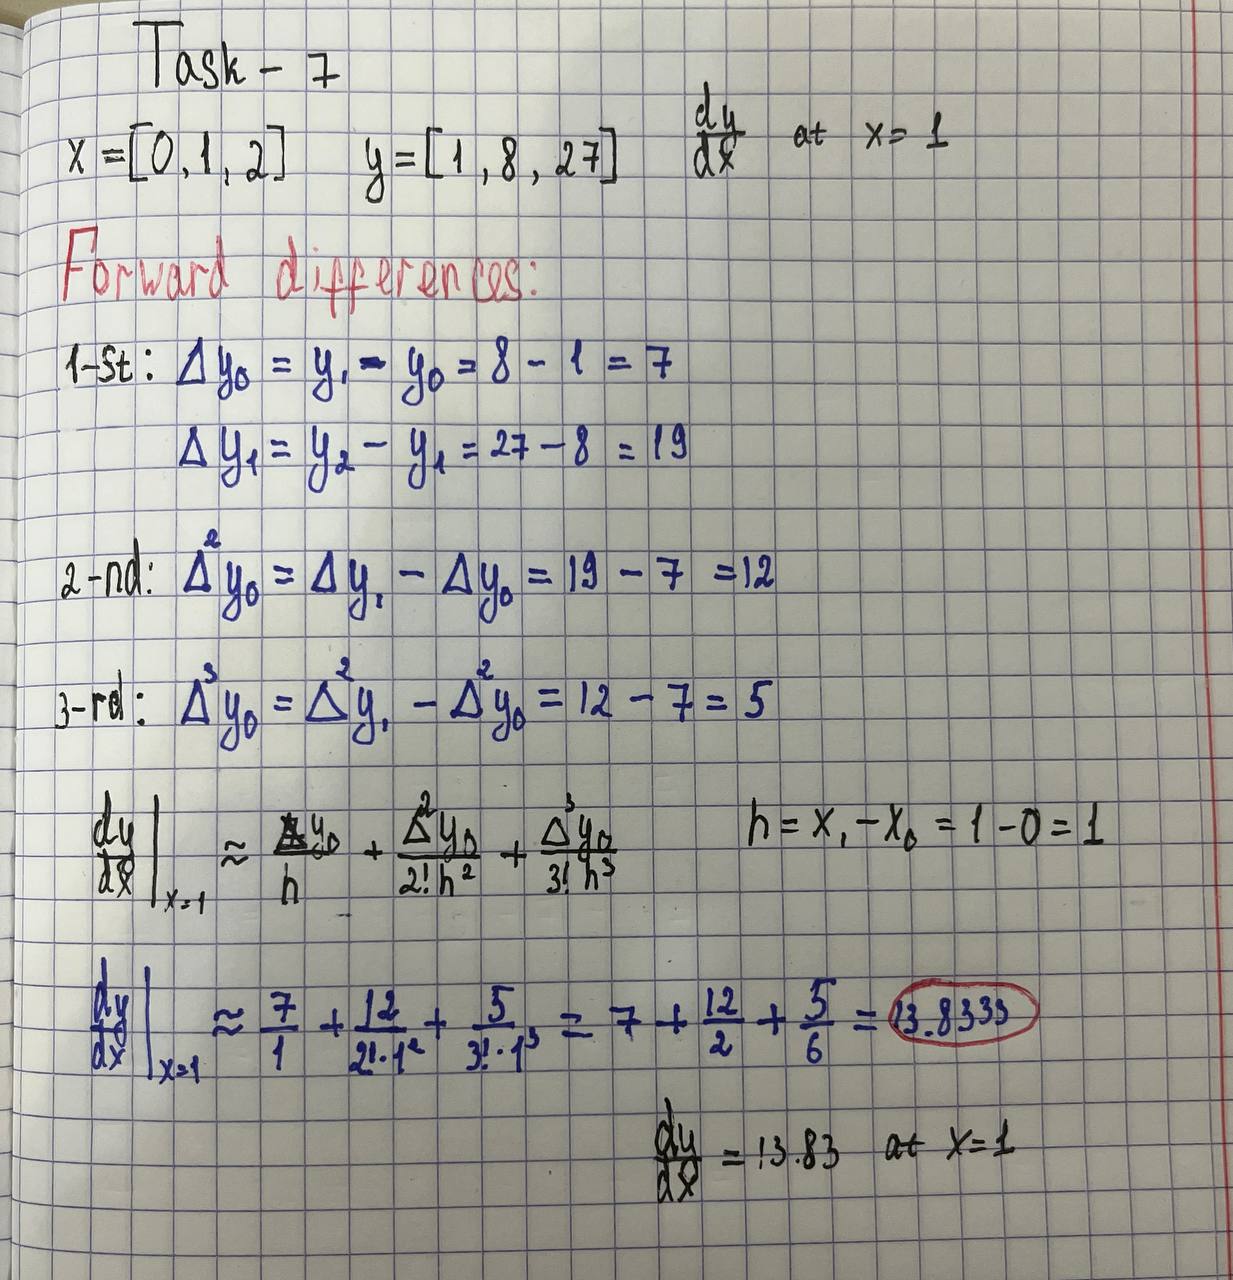 Task - 7
x = [0, 1, 2] y = [1, 8, 27] dy/dx at x = 1
Forward differences:
1-st: Δy₀ = y₁ - y₀ = 8 - 1 = 7
Δy₁ = y₂ - y₁ = 27 - 8 = 19
2-nd: Δ²y₀ = Δy₁ - Δy₀ = 19 - 7 = 12
3-rd: Δ³y₀ = Δ²y₁ - Δ²y₀ = 12 - 7 = 5
dy/dx |ₓ₌₁ ≈ Δy₀/h + Δ²y₀/2! h² + Δ³y₀/3! h³ h = x₁ - x₀ = 1 - 0 = 1
dy/dx |ₓ₌₁ ≈ 7/1 + 12/2!·1² + 5/3!·1³ = 7 + 12/2 + 5/6 = 13.8333
dy/dx = 13.83 at x = 1